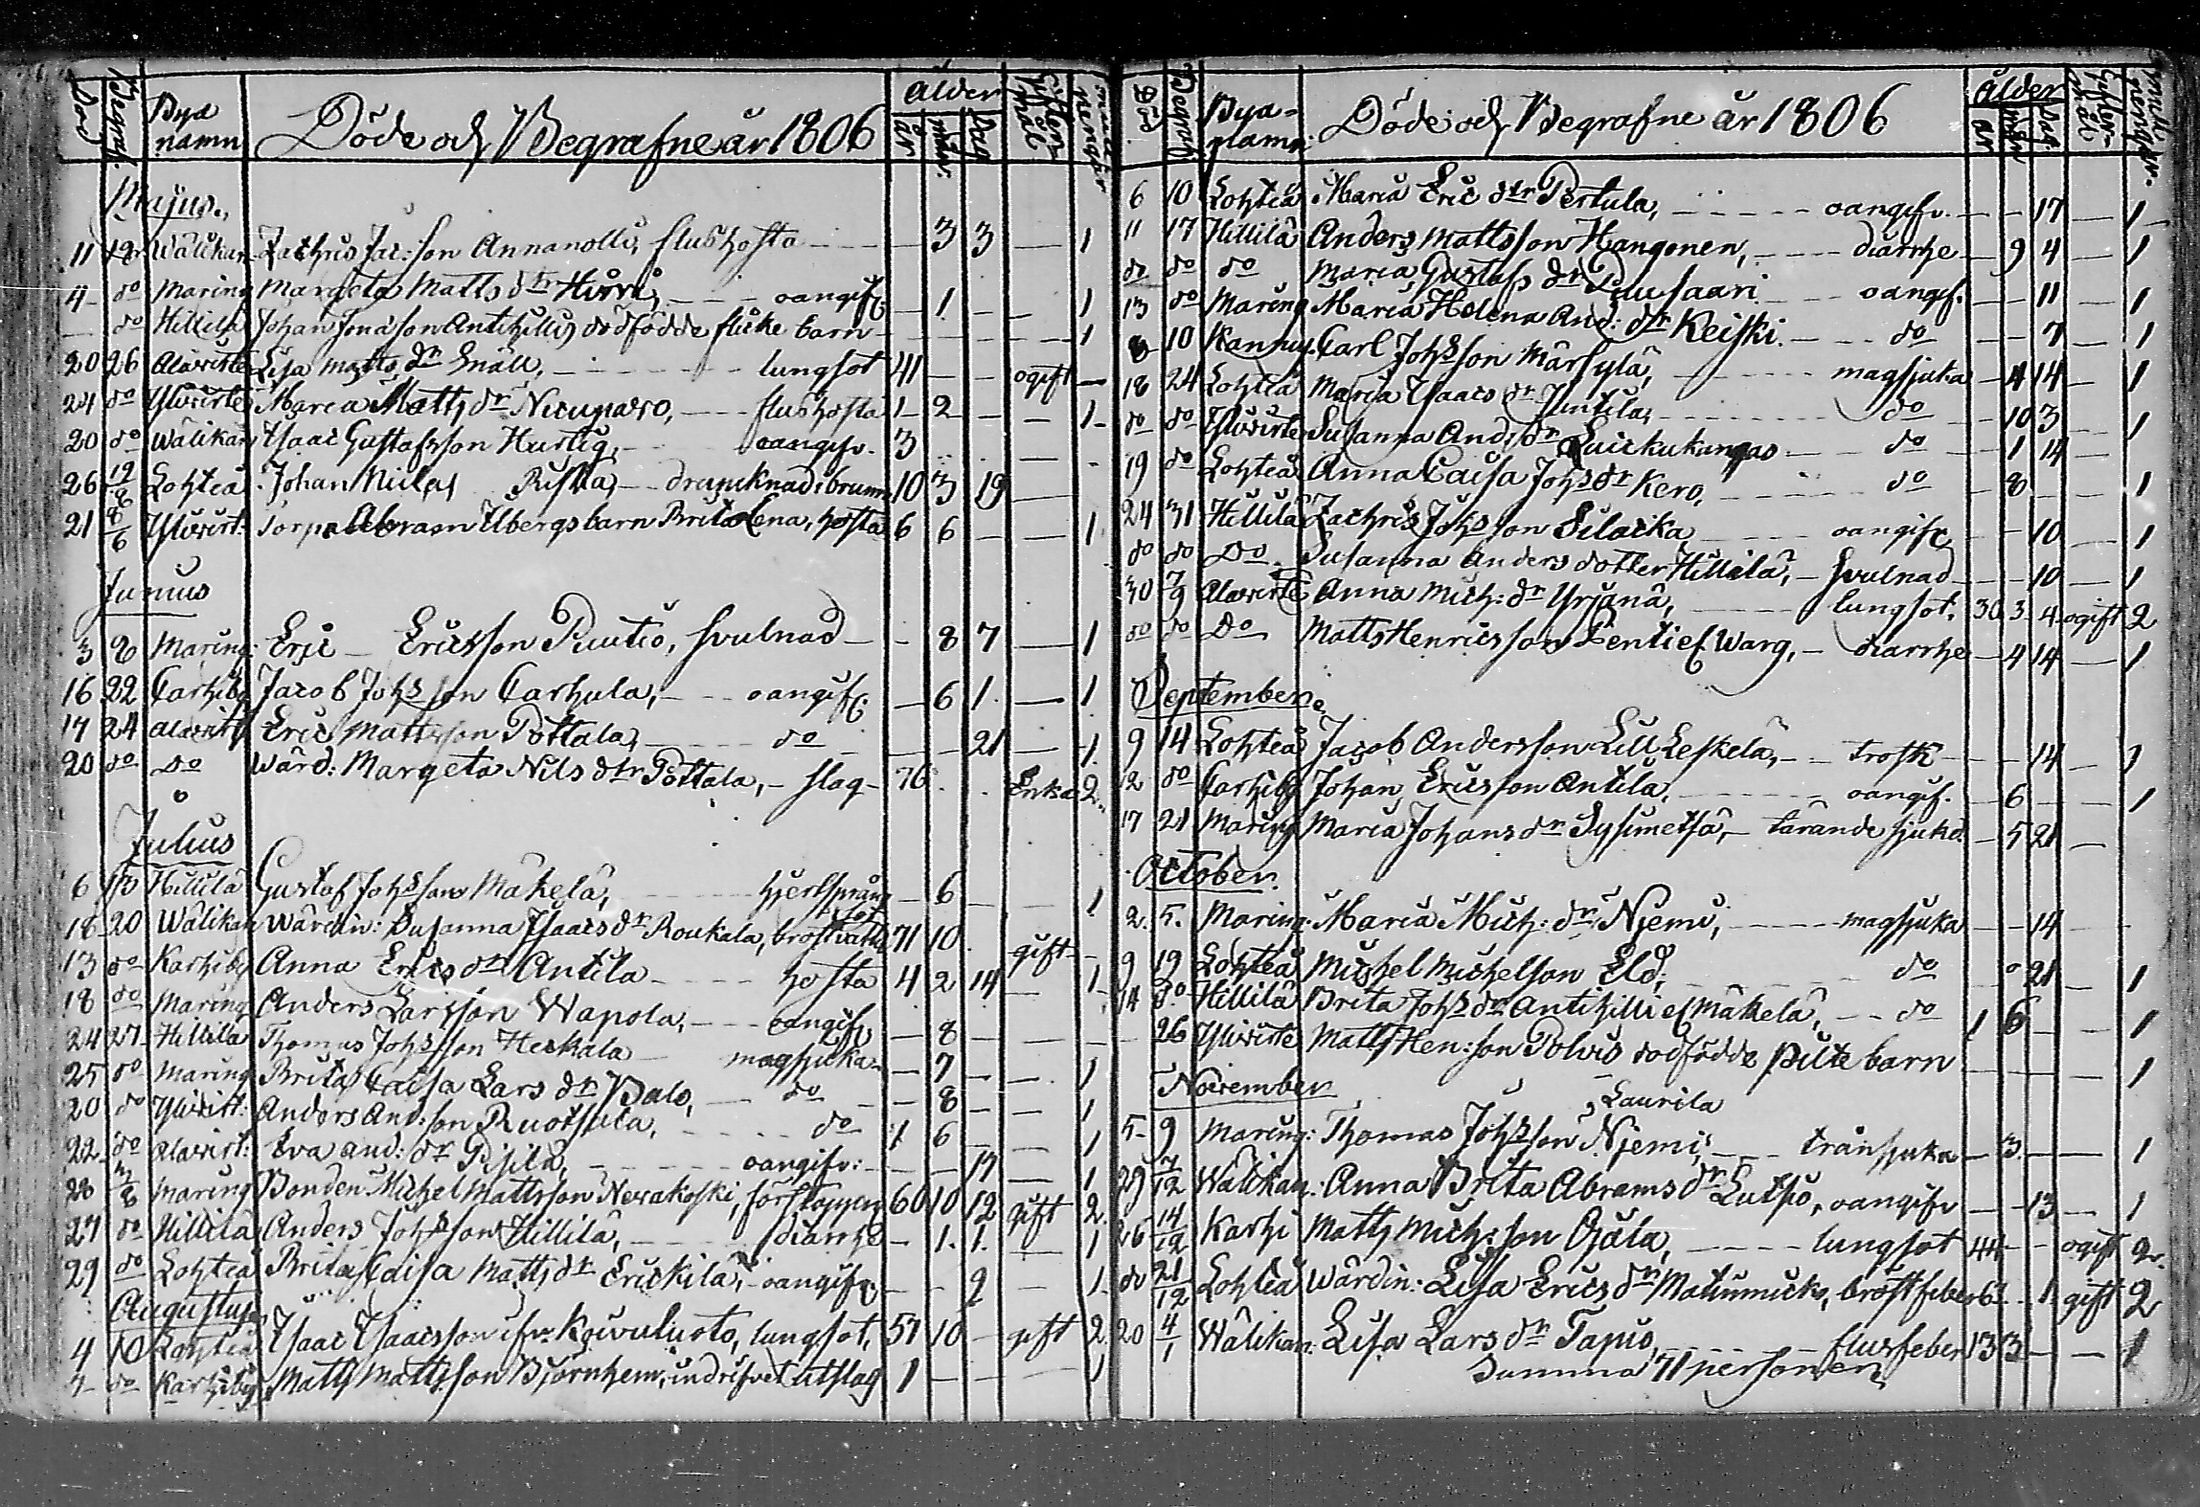 Död Begraf. Bya namn Döde och Begrafne år 1806 Ålder år mån: Dag
Majus.
11 Wälikan. Zachris Jac:son Annanolli, flushosta 3 3 1
4 do Maring Margeta Matts dtr Hirvi, oangifv. 1 1
do Hillilä Johan Jonasson Antihillis dödfödde flicke barn 1
20 26 Alavirte Lisa Matts dr Snäll, lungsot 41 ogift
24 do Ylivirte Maria Matts dr Nicuparo, flushosta 1 2 1
20 do Wälikan Isaac Gustafsson Hurtig, oangifv. 3
26 Lohteå Johan Niclas Riska, drunknad i brunn 10 3 19
21 8/6 Ylivirt: Torp. Abram Ubergs barn Brita Lena, hosta 6 6 1
Junius
3 8 Maring: Eric Ericsson Puutio, svulnad 8 7 1
16 22 Carhiby Jacob Johsson Carhula, oangif. 6 1 1
17 24 Alavirt Eric Mattsson Pöttala, do 21 1
20 do Do Wärd: Margeta Nils dtr Pöttala, slag 76 Enka 2
Julius
6 Hillilä Gustaf Johsson Mäkelä, hjertsprång 6 1
18 20 Wälikan Wärdin: Susanna Isaacs dr Roukala, 71 10 gift
13 do Karhiby Anna Erics dr Antila hosta 4 2 14 1
18 do Maring Anders Larsson Wapola, oangif. 8
24 27 Hillilä Thomas Johsson Heikala magsjuka 7 1
25 do Maring Brita Caisa Lars dr Palo, do 8 1
20 do Ylivirt: Anders And:son Ruotsala, do 1 6 1
22 do Alavirt: Eva And: dr Pisilä, oangifv: 1
28 3/8 Maring Bonden Michel Mattsson Nevakoski, förstoppning 60 10 12 gift 2
27 do Hillilä Anders Johsson Hillilä, diarrhe 1 1 1
29 do Lohteå Brita Caisa Matts dr Erickilä, oangif. 9 1
Augustus
4 10 Lohteå Isaac Isaacsson Koivuluoto, lungsot, 57 10 gift 2
7 do Karhiby Matts Mattsson Björnhem, indrifvet utslag 1 1
Död Begraf. Bya-namn: Döde och Begrafne år 1806 Ålder år mån Dag.
6 10 Lohteå Maria Eric dtr Pertula, oangifv. 17 1
11 17 Hillilä Anders Mattsson Hangonen, diarrhe 9 4 1
do do do Maria Gustafs dr Pausaari oangif. 11 1
13 do Maring Maria Helena And: dtr Keiski. do 7 1
8 10 Kannus. Carl Johsson Märsylä, magsjuka 4 14 1
18 24 Lohteå Maria Isaacs dr Juntila, do 10 3 1
do do Ylivirte Susanna And: dr Luickukangas do 1 14
19 do Lohteå Anna Caisa Johs dr Kero, do 8 1
24 31 Hillilä Zachris Johsson Silacka oangif. 10 1
do do Do. Susanna Anders dotter Hillilä, svulnad 10 1
30 7/9 Alavirte Anna Mich: dr Yrjänä, lungsot. 30 3 4 ogift 2
do do Do Matts Henricsson Penti ef Warg, diarrhe 4 14 1
September.
9 14 Lohteå Jacob Andersson Lill Leskelä, trosk 14 1
12 do Carhiby Johan Ericsson Antila, oangif. 6 1
17 21 Maring Maria Johans dr Sysimetsä, tärande sjukd. 5 21
October.
2. 5. Maring: Maria Mich: dr Njemi, magsjuka 14
9 19 Lohteå Michel Michelson Eld, do 21 1
14 do Hillilä Brita Johs dr Antihilli ef Mäkelä, do 1 6 1
26 Ylivirte Matts Hen:son Polvis dödfödde pilte barn 1
November
Laurila
5 9 Maring: Thomas Johsson Njemi, trånsjuka 3 1
29 7/12 Wälikan: Anna Brita Abrams dr Luitjo, oangifv 13 1
26 14/12 Karhi Matts Mich:son Ojala, lungsot 44 ogift 2.
do 21/12 Lohteå Wärdin: Lisa Erics dr Matinmicko, bröstfeber 1 gift 2
20 4/1 Wälikan: Lisa Lars dr Tapio, flusfeber 13 3 1
Summa 71 personer